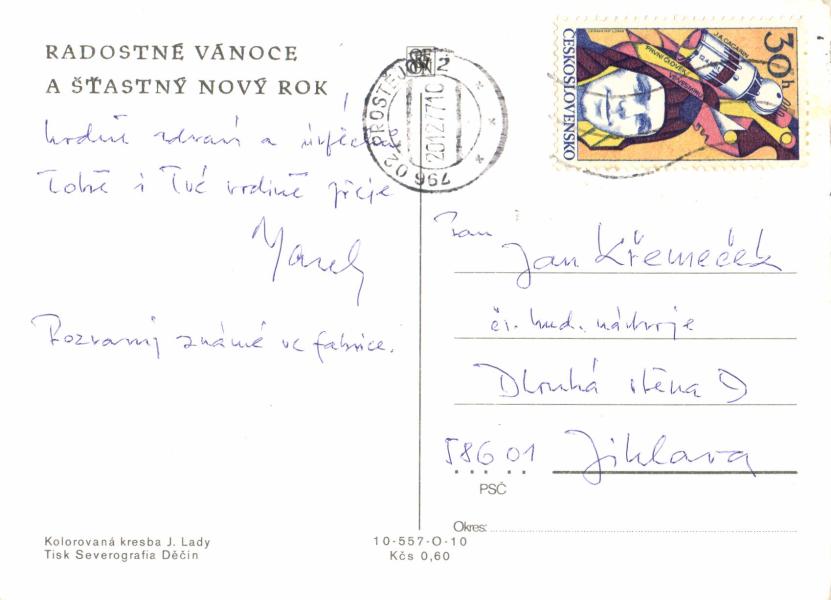 RADOSTNÉ VÁNOCE
A ŠŤASTNÝ NOVÝ ROK
hodně zdraví a úspěchů
Tobě i Tvé rodině přeje
Pozdravuj známé ve fabrice.
796 02 PROSTĚJOV 2
20.12.77.10
ČESKOSLOVENSKO
J.A. GAGARIN
PRVNÍ ČLOVĚK
VE VESMÍRU
30h
Pan
Jan Křemeček
čs. hud. nástroje
Dlouhá stěna
586 01 Jihlava
PSČ
Okres:
Kolorovaná kresba J. Lady
Tisk Severografia Děčín
10-557-O-10
Kčs 0,60